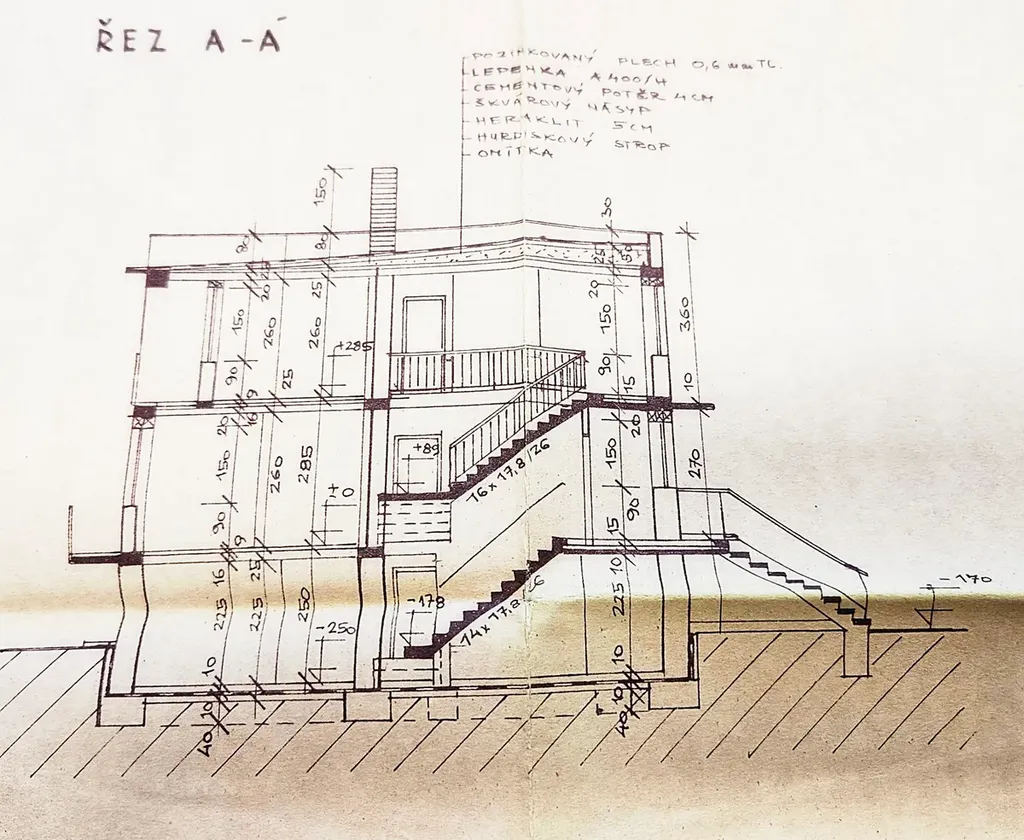 ŘEZ A-Á
POZINKOVANÝ PLECH 0,6 mm TL.
LEPENKA A400/H
CEMENTOVÝ POTĚR 4CM
ŠKVÁROVÝ NÁSYP
HERAKLIT 5CM
HURDISKOVÝ STROP
OMÍTKA
150
80
80
30
25
25
50
20
25
20
150
260
260
150
360
+285
90
9
25
90
15
10
20
16
20
150
260
285
+89
16 x 17,8/26
150
270
±0
90
90
9
15
16
25
10
225
225
250
-178
14 x 17,8
225
-170
-250
10
10
10
10
40
40